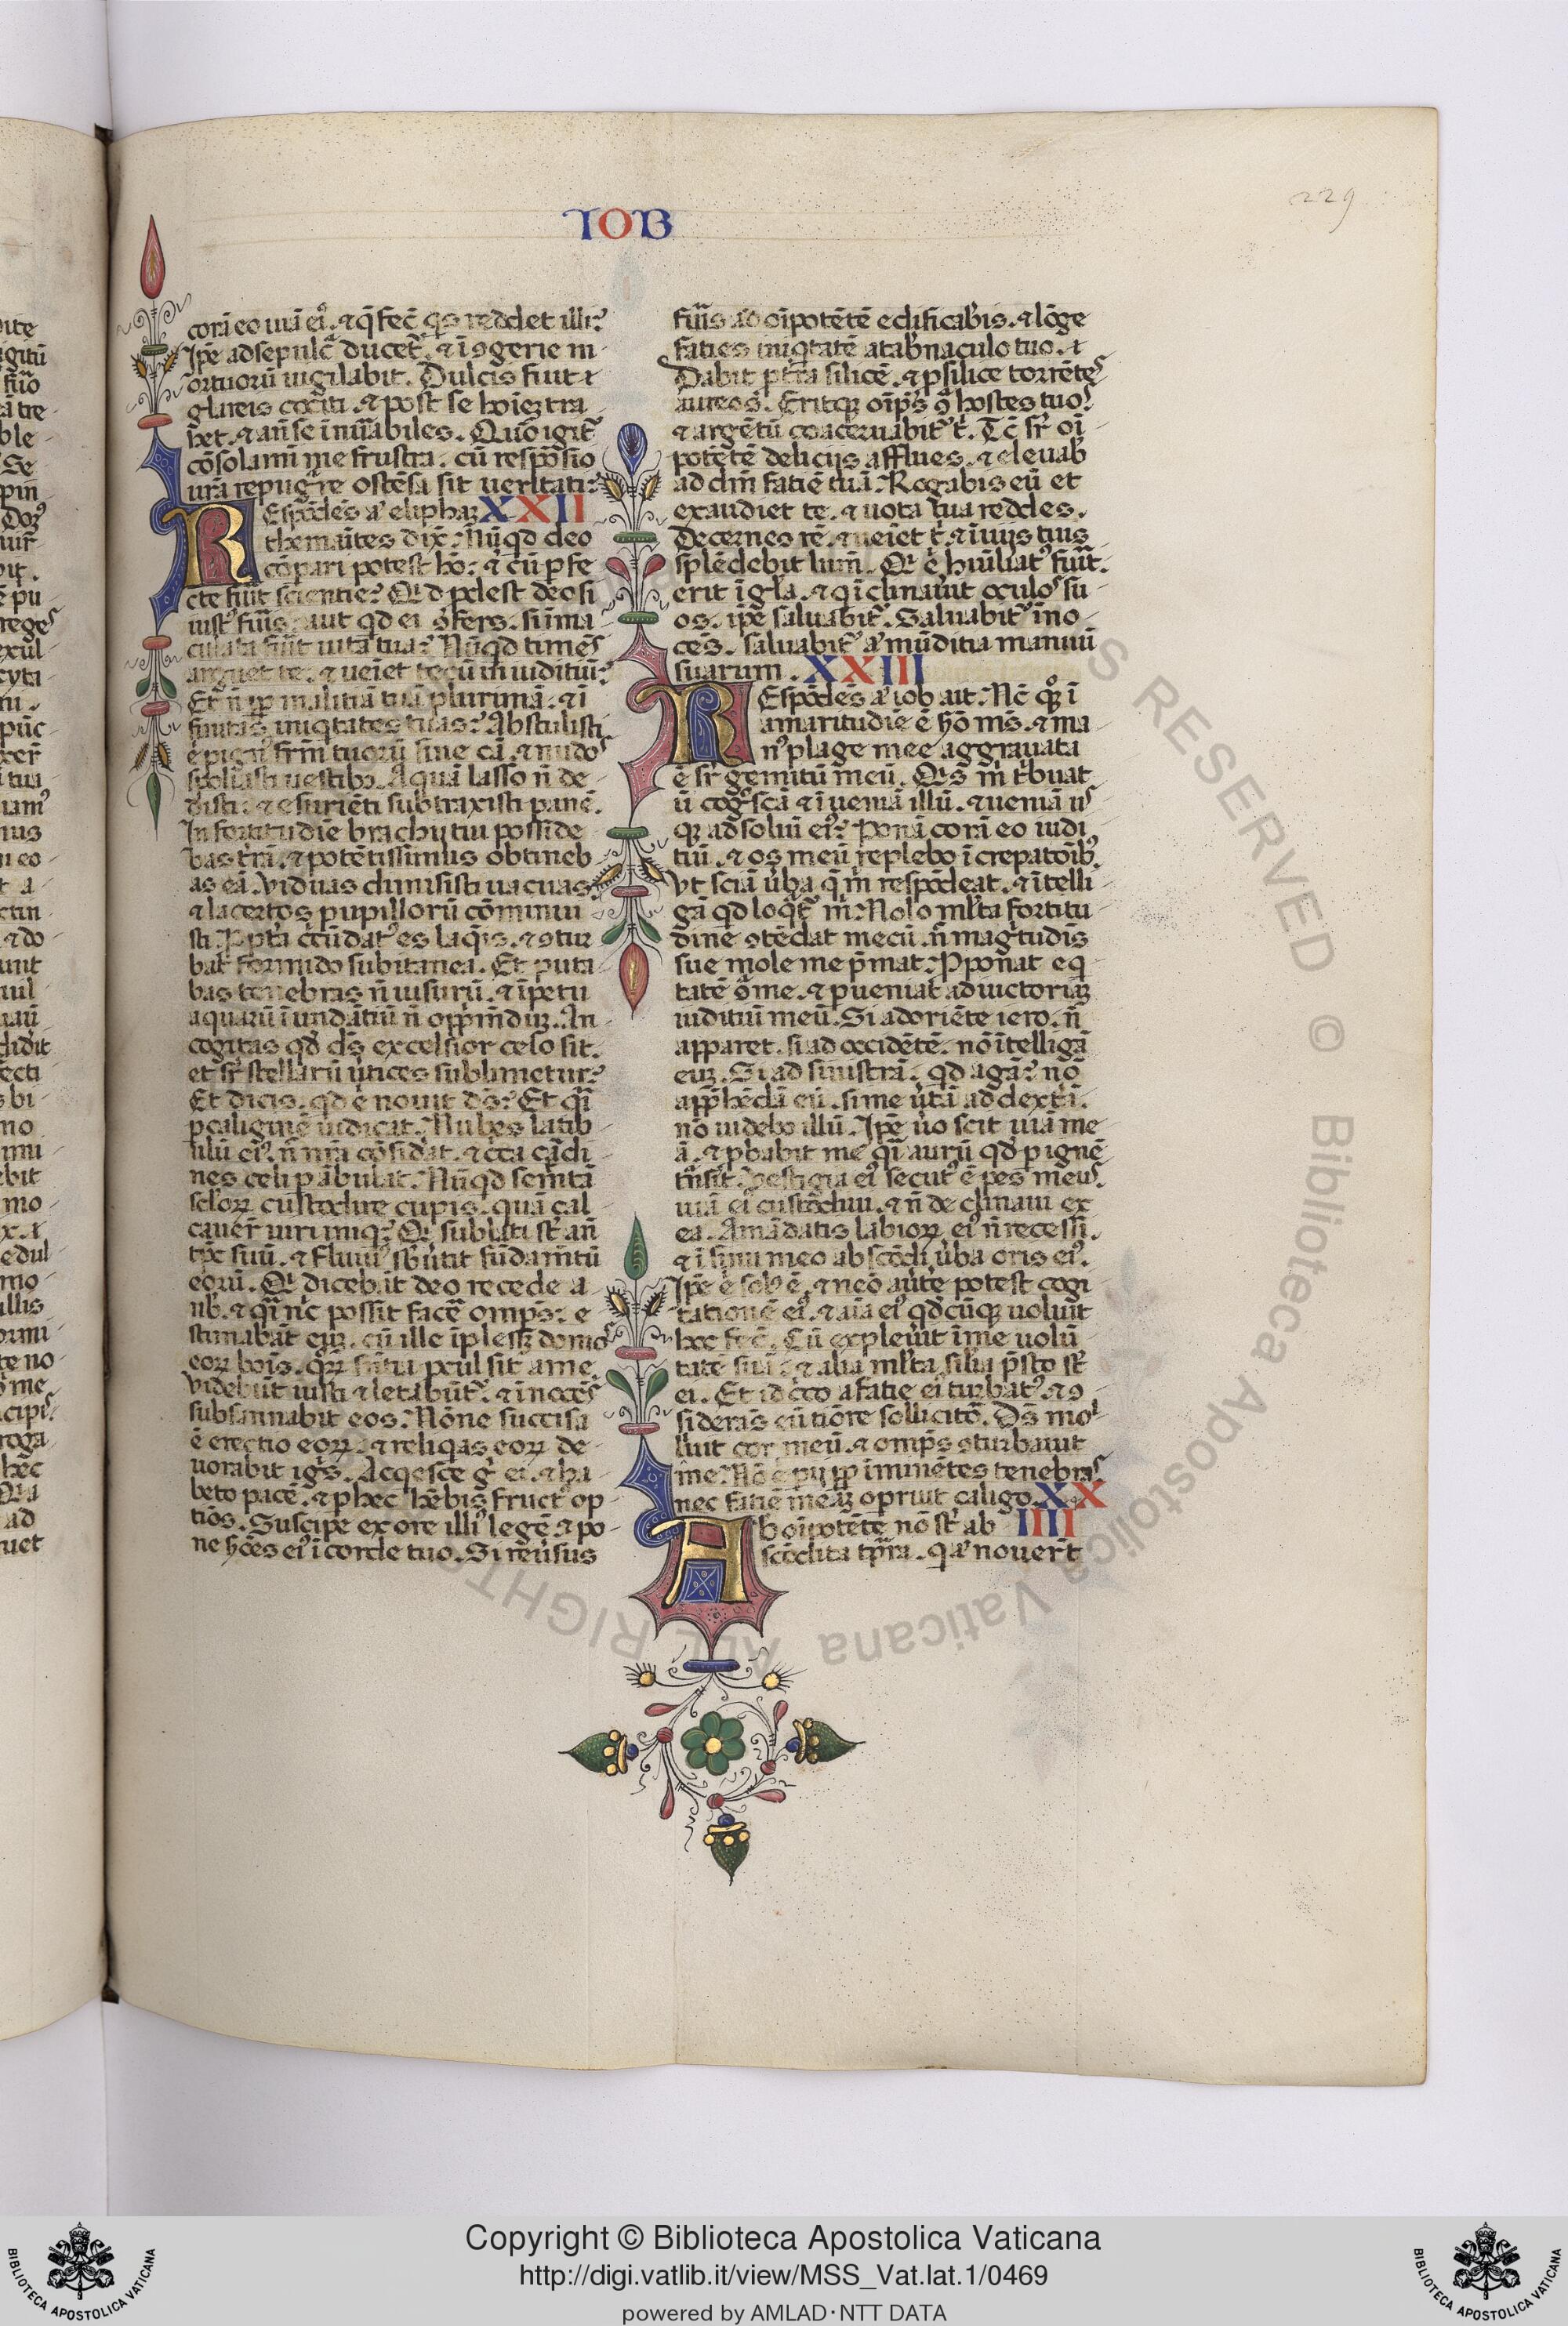 229
IOB
corā eo uiā ei᷒. ⁊ q̄ fec̄ q̄s reddet illi?
Ip̄e ad sepulc̄ ducet᷒. ⁊ ī ꝯgerie m
ortuorū uigilabit. Dulcis fuit ⁊
glareis cociti. ⁊ post se hoīeꝫ tra
het. ⁊ an̄ se īnūabiles. Quō igit᷒
cōsolamī me frustra. cū respōsio
urā repugre ostēsa sit ueritati?
XXII
Espōdēs a᷒ eliphaꝫ
themaītes dix̄. Nūqd deo
cōpari potest hō: ⁊ cū ꝑfe
cte fuīt scientie? Qd ꝓdest deo si
iust᷒ fuīs. aut qd ei ꝯfers. si īma
culata fuīt uita tua? Nūqd timēs
arguet te. ⁊ ueīet tecū in iuditiū?
Et n̄ ꝓꝑ malitiā tuā plurimā. ⁊ ī
finitas iniqtates tuas? Abstulisti
ē pign᷒ frm̄ tuorū sine cā. ⁊ nudos
spoliasti uestibꝫ. Aquā lasso n̄ de
disti: ⁊ esuriēti subtraxisti panē.
In fortitudīe brachii tui posside
bas trā. ⁊ potētissimus obtineb
as eā. Viduas dimisisti uacuas
⁊ lacertos pupillorū cōminui
sti. Ꝓptā ccūdat᷒ es laqīs. ⁊ ꝯtur
bat formido subitanea. Et puta
bas tenebras n̄ uisurū. ⁊ īpetu
aquarū īundātiū n̄ opp̄mdū. An
cogitas qd d̄s excelsior celo sit.
et sr̄ stellarū ūtices sublimetur?
Et dicis. qd ē nouit d̄s? Et qī
ꝑ caliginē iudicat. Nubes latib
ulū ei᷒. n̄ nr̄a cōsidāt. ⁊ cca cādi
nes celi ꝑābulat. Nūqd semītā
sclorꝫ custodire cupis. quā cal
cauer̄ uiri iniq᷒? Q sublati st̄ an̄
tp̄s suū. ⁊ fluui᷒ sbūtit fūdam̄tū
eorū. Q dicebāt deo recede a
nb̄. ⁊ qī nc̄ possit face᷒ omp̄s: e
stimabāt eū. cū ille īplesꝫ domos
eorꝫ boīs. qrꝫ sn̄tīa ꝓcul sit a me.
Videbūt iusti ⁊ letabūt᷒. ⁊ īnocēs
subsannabit eos. Nōne succisa
ē erectio eorꝫ: ⁊ reliqas eorꝫ de
uorabit igīs. Acqesce ḡ ei. ⁊ ha
beto pacē. ⁊ ꝑ hec hēbis fruct᷒ op
tiōs. Suscipe ex ore illi᷒ legē ⁊ po
ne s̄ōes ei᷒ ī corde tuo. Si reūsus
fuīs ad oīpotētē edificab̄is. ⁊ lōge
faties iniqtatē a tab̄naculo tuo. ⁊
Dabit ꝑ trā silicē. ⁊ ꝑ silice torrētes
aureos. Eritqꝫ oīp̄s ꝯ hostes tuos
⁊ argētū coaceruabit᷒ t̄. Tc̄ sr̄ oī
potētē deliciis afflues. ⁊ eleuab̄
ad dm̄ fatiē tuā. Rogabis eū et
exaudiet te. ⁊ uota tua reddes.
Decernes rē. ⁊ ueīet t̄. ⁊ ī uiis tuis
splēdebit lum̄. Q ē hūiliat᷒ fūt.
erit ī gla. ⁊ q īclinaūt oculos su
os. ip̄e saluabit᷒. Saluabit᷒ īno
cēs. saluabit᷒ a᷒ mūditia manuū
suarum. XXIII
Espōdēs a᷒ iob ait. Nc̄ qꝫ ī
amaritudīe ē s̄ō m̄s. ⁊ ma
n᷒ plage mee aggrauata
ē sr̄ gemitū meū. Qs m̄ tbuat
ū cogscā ⁊ īueniā illū. ⁊ ueniā us
qꝫ ad soluī ei᷒? Ponā corā eo iudi
tiū. ⁊ os meū replebo īcrepatōibꝫ
Vt sciā ūba q̄ m̄ respōdeat. ⁊ ītelli
gā qd loq̄t᷒ m̄. Nolo ml̄ta fortitu
dine ꝯtēdat mecū. n̄ magtudīs
sue mole me p̄mat. Ꝓponat eq
tatē ꝯ me. ⁊ ꝑueniat ad uictoriaꝫ
iuditiū meū. Si ad oriēte iero. n̄
apparet. si ad occidētē. nō ītelligā
eū. Si ad sinistrā. qd agā? nō
app̄hēdā eū. si me ūtā ad dextā.
nō uidebo illū. Ip̄e ūo scit uiā me
ā. ⁊ ꝓbabit me qī aurū qd ꝑ ignē
trāsit. Vestigia ei᷒ secut᷒ ē pes meus.
uiā ei᷒ custodiui. ⁊ n̄ declinaui ex
ea. A mādatis labiorꝫ ei᷒ n̄ recessi.
⁊ ī sinu meo abscōdi ūba oris ei᷒.
Ip̄e ē sol᷒ ē. ⁊ nēo aūte potest cogi
tationē ei᷒. ⁊ aīa ei᷒ qdcūqꝫ uoluit
hoc fec̄. Cū expleuīt ī me uolū
tatē suā: ⁊ alia ml̄ta silia p̄sto st̄
ei. Et idcco a fatie ei᷒ turbat᷒. ⁊ ꝯ
siderās eū tiōre sollicitō. D̄s mol
liuit cor meū. ⁊ omp̄s ꝯturbauit
me. Nō ē ꝑii ꝓꝑ īminētes tenebras
nec fatiē meaꝫ opruit caligo. XX
b oīpotēte nō st̄ ab IIII
scōdita tp̄ra. q a᷒ nouert̄
Copyright © Biblioteca Apostolica Vaticana
http://digi.vatlib.it/view/MSS_Vat.lat.1/0469
powered by AMLAD·NTT DATA